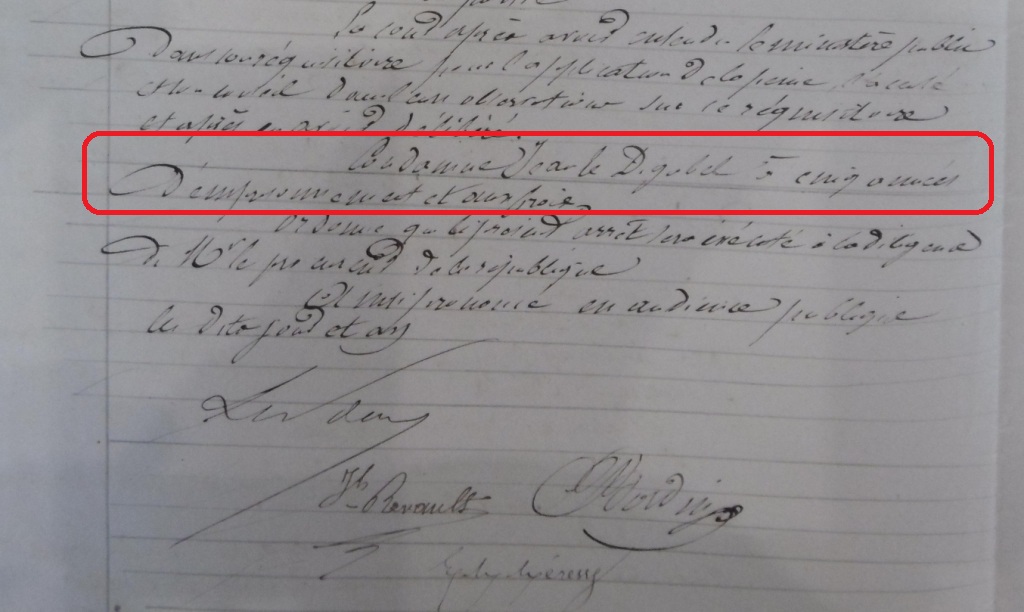 La cour après avoir entendu le ministère public
Dans son réquisitoire pour l'application de la peine, l'accusé
et son conseil dans leurs observations sur ce réquisitoire
et après en avoir délibéré.
Condamne Jean le Digabel à cinq années
D'emprisonnement et aux frais
Ordonne que le présent arrêt sera exécuté à la diligence
De Mr le procureur de la république
Ainsi prononcé en audience publique
les dits jour et an
Jh Renault